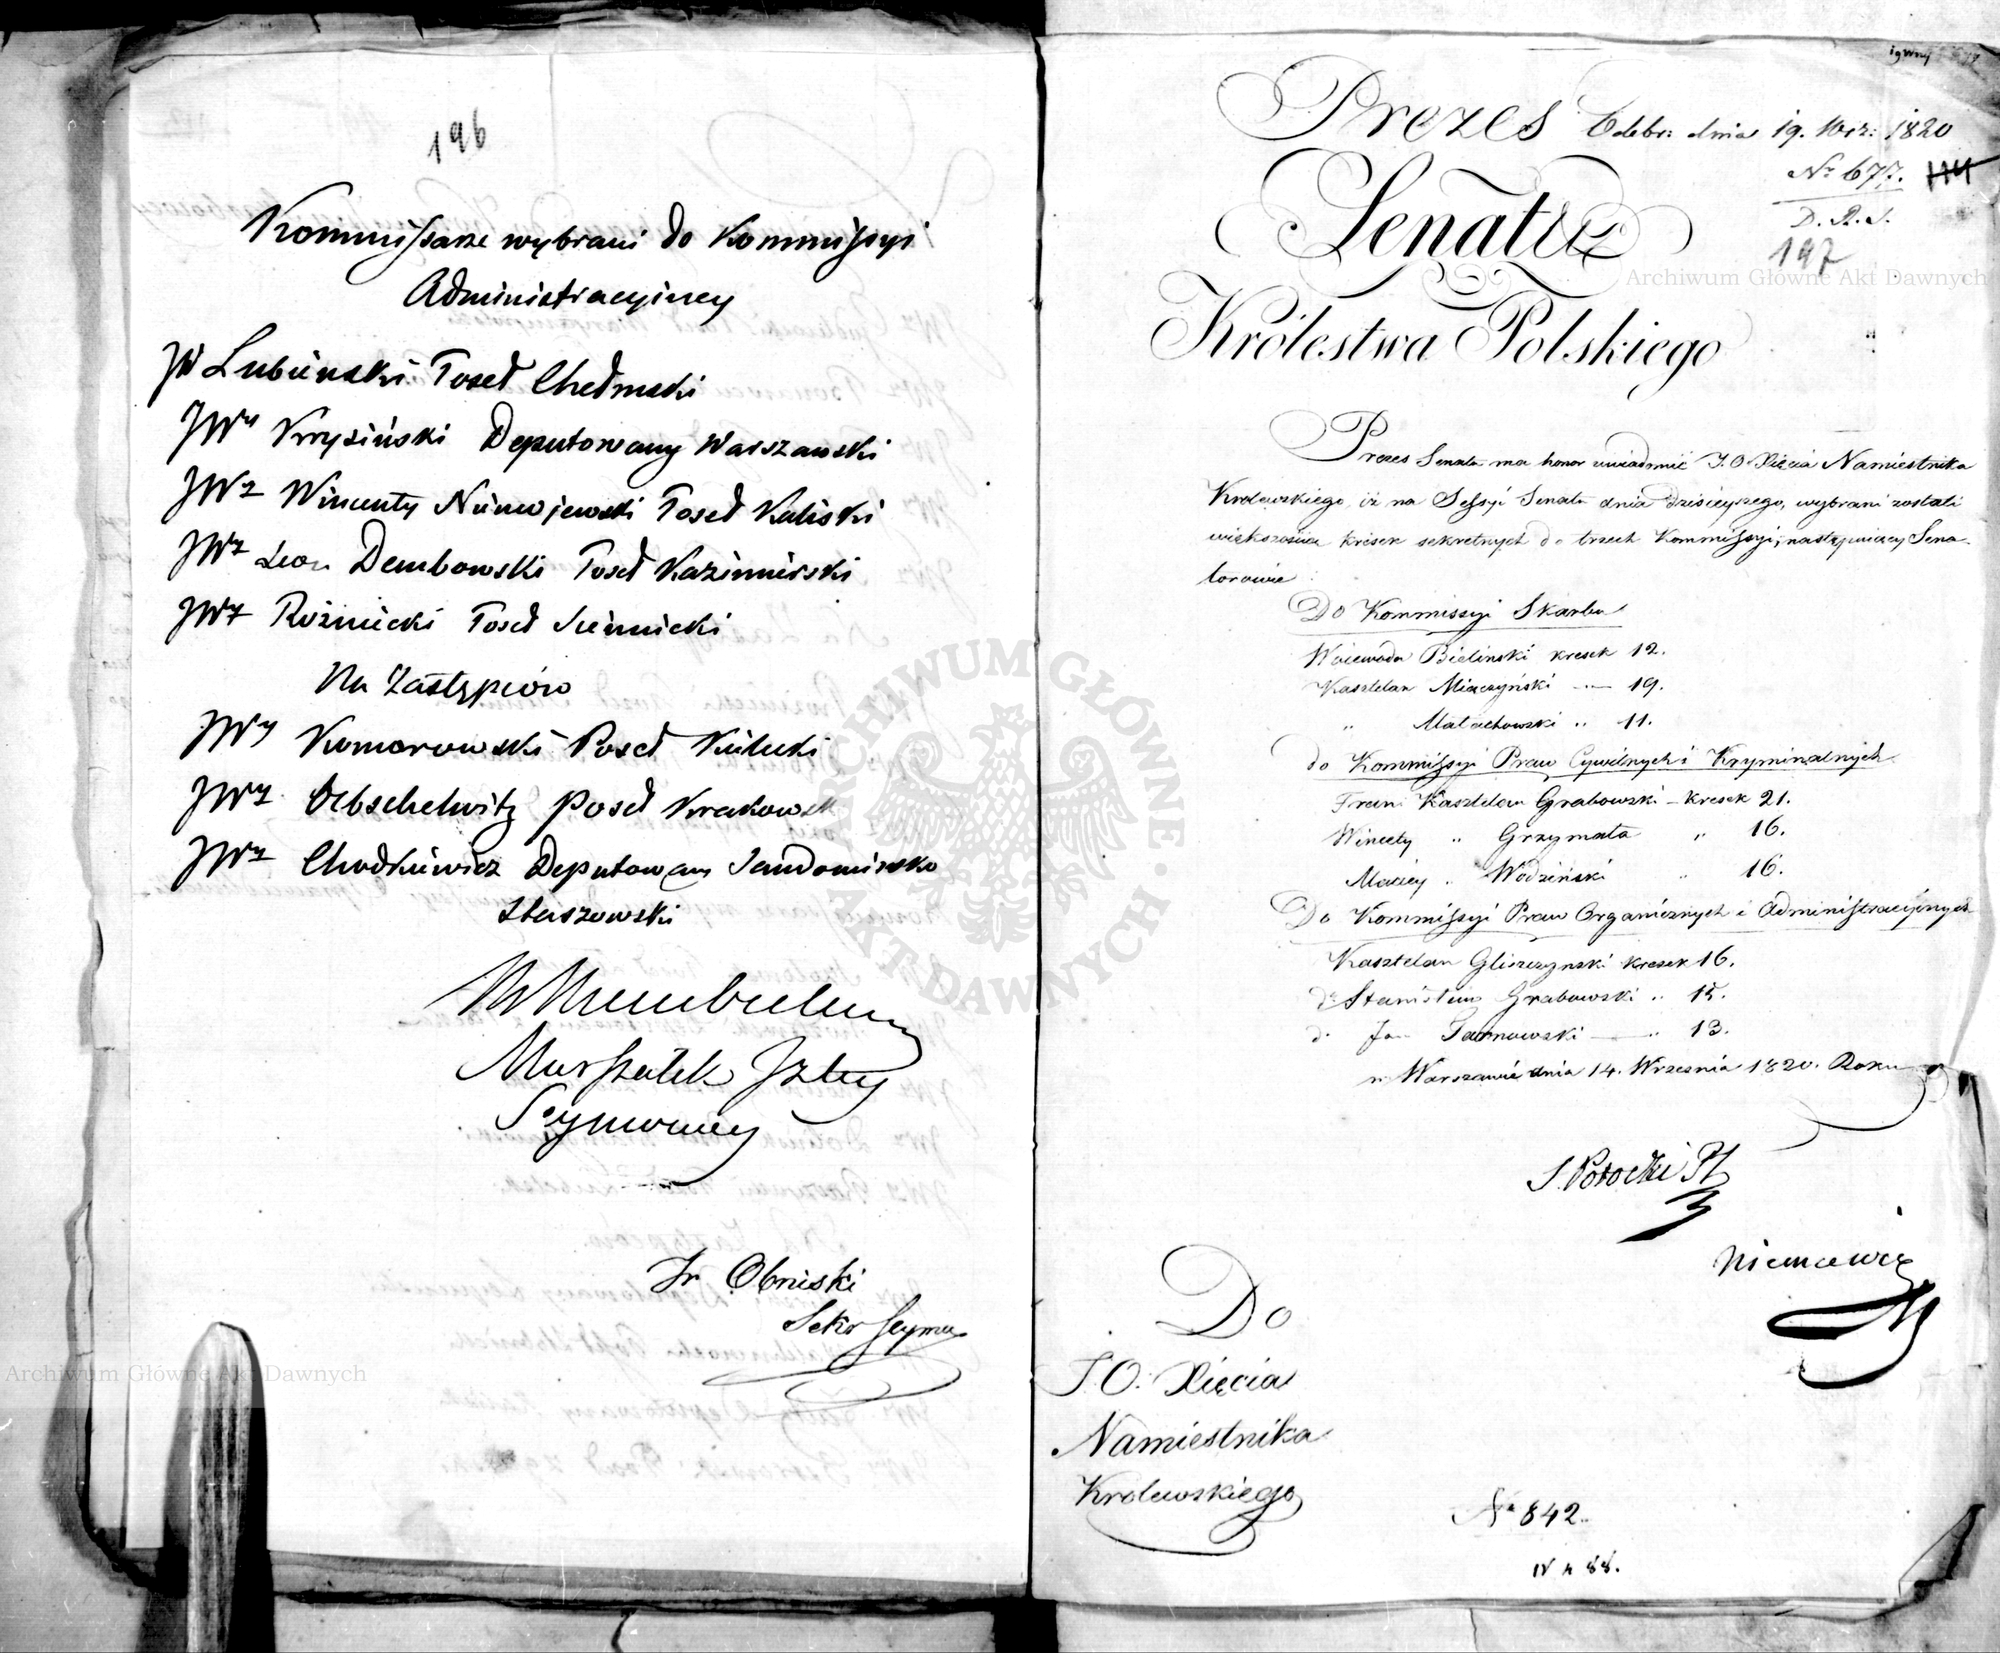 196
Kommissarze wybrani do Kommissyi
Administracyiney
JW Lubieński Poseł Chełmski
JWy Krysiński Deputowany Warszawski
JWy Wincenty Niemojewski Poseł Kaliski
JWy Leon Dembowski Poseł Kazimirski
JWy Rożniecki Poseł Siennicki
Na Zastępców
JWy Komorowski Poseł Kielecki
JWy Oebschelwitz Poseł Krakowsk
JWy Chodkiewicz Deputowany Sandomirsko
Staszowski
Marszałek Izby
Seymowey
Ir Obniski
Sekr Seymu
Prezes
Odebr: dnia 19. Wrz: 1820
Senatu
No 677.
D. R. S.
197
Królestwa Polskiego
Prezes Senatu ma honor uwiadomić J. O. Xięcia Namiestnika
Królewskiego, iż na Sessyi Senatu dnia dzisieyszego, wybrani zostali
większością kresek sekretnych do trzech Kommissyi, następuiący Sena-
torowie
Do Kommissyi Skarbu
Woiewoda Bieliński kresek 12.
Kasztelan Miączyński — 19.
" Małachowski " 11.
do Kommissyi Praw Cywilnych i Kryminalnych
Frani Kasztelan Grabowski - kresek 21.
Wincety " Grzymała " 16.
Maciey " Wodziński " 16.
Do Kommissyi Praw Organicznych i Administracyinych
Kasztelan Gliszczynski kresek 16.
do Stanisław Grabowski " 15.
do Jan Tarnowski — " 13.
w Warszawie dnia 14. Września 1820. Roku
S. Potocki PS
Niemcewicz
Do
J. O. Xięcia
Namiestnika
Królewskiego
No 842.
Archiwum Główne Akt Dawnych
Archiwum Główne Akt Dawnych
ARCHIWUM GŁÓWNE AKT DAWNYCH